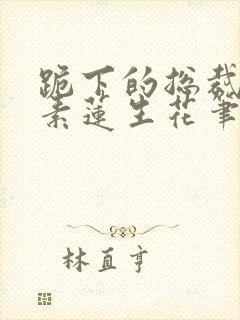 跪下的総裁
素蓮生花筆
林直亨